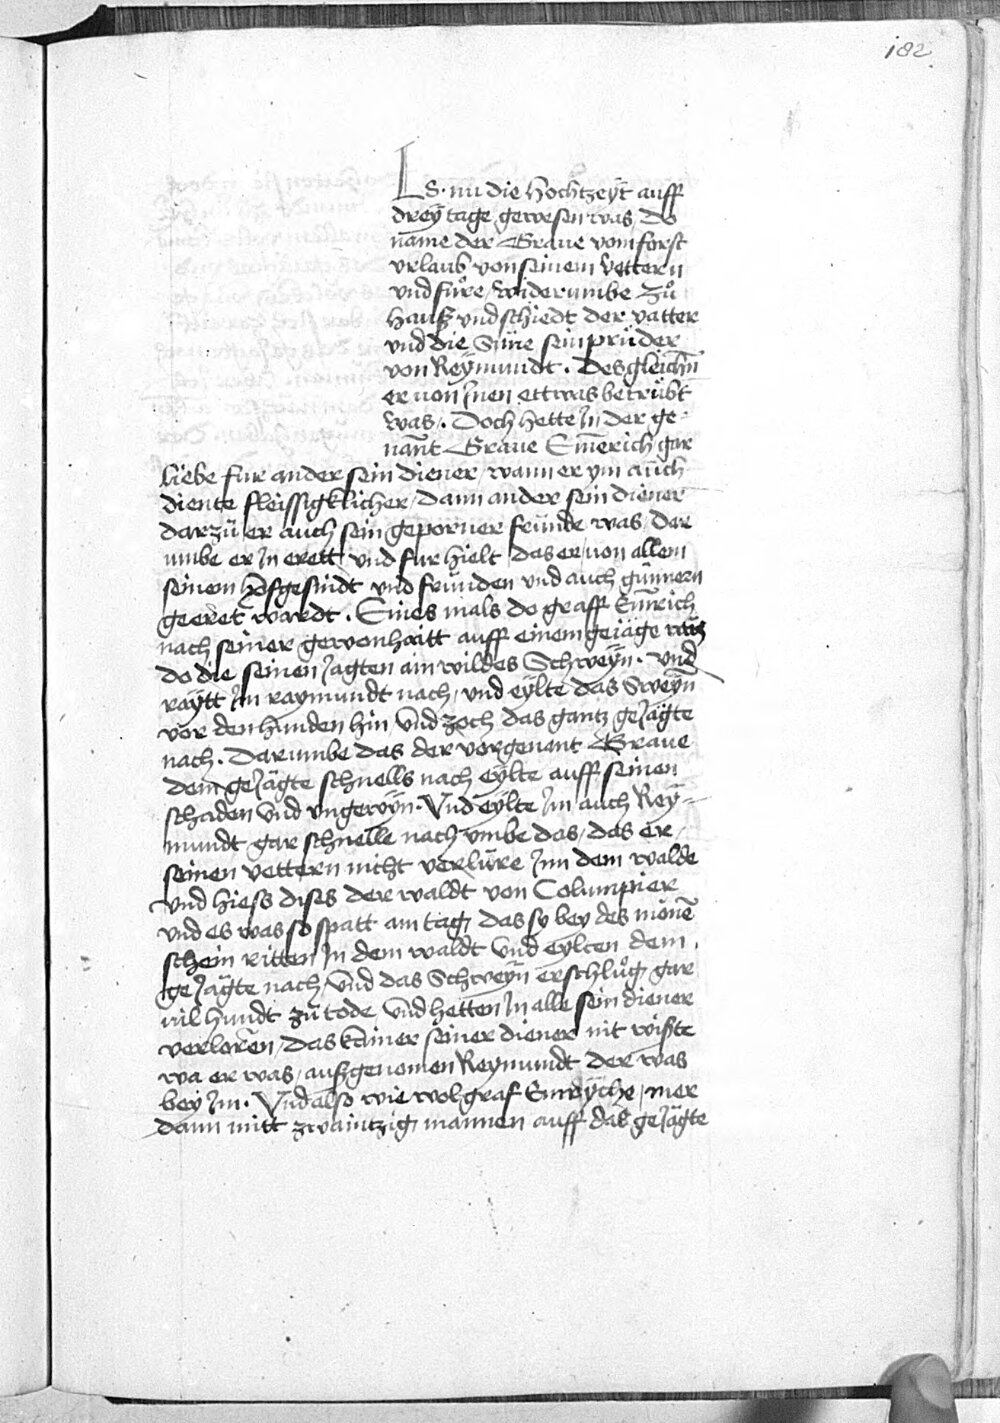 182
LS · nu die Hochtzeÿt auff
dreÿ tage gewesen was / do
name der Graue vom forst
vrlaub von seinem vettern
vnd fůre / widerumbe zů
hauß vnd schiedt der vatter
vnd die Süne sein prüder
von Reÿmundt . Desgleichn̄
er von Jnen ettwas betrübt
was . Doch hette Jn der ge-
nan̄t Graue Em̄erich gar
liebe fur ander sein diener / wann er ym auch
diente fleissigklicher / dann ander sein diener
darzů er auch sein geporner freünde was / dar
umbe er Jn erett vnd fur hielt das er / von allem
seinem hofgesindt vnd freunden vnd auch günnern
geeret wardt . Eines mals do graff Em̄rich
nach seiner gewonhaitt auff einem geiäge was
do die seinen Jagten ain wildes Schweÿn · vnd
raÿtt Jm raymundt nach / vnd eÿlte das Sweÿn
vor den hunden hin vnd zoch das gantz geJägte
nach . Darumbe das der vorgenent Graue
dem geJägte schnells nach eÿlte auff seinen
schaden vnd vngewÿn · Vnd eÿlte Jm auch Reÿ-
mundt gar schnelle nach vmbe das / das er /
seinen vettern nicht verlüre Jnn dem walde
vnd hiess dises der waldt von Columpier
vnd es was so spatt am tag das sy bey des mone
schein ritten Jn dem waldt vnd eylten dem .
geJägte nach / vnd das Schweÿn erschlůg gar
vil hundt zů tode vnd hetten Jn alle sein diener
verloren / das kainer seiner diener nit wißte
wa er was / aufgenomen Reymundt der was
bey Jm . Vnd also wie wol graf Emrÿche / mer
dann mitt zwaintzig mannen auff das geJägte